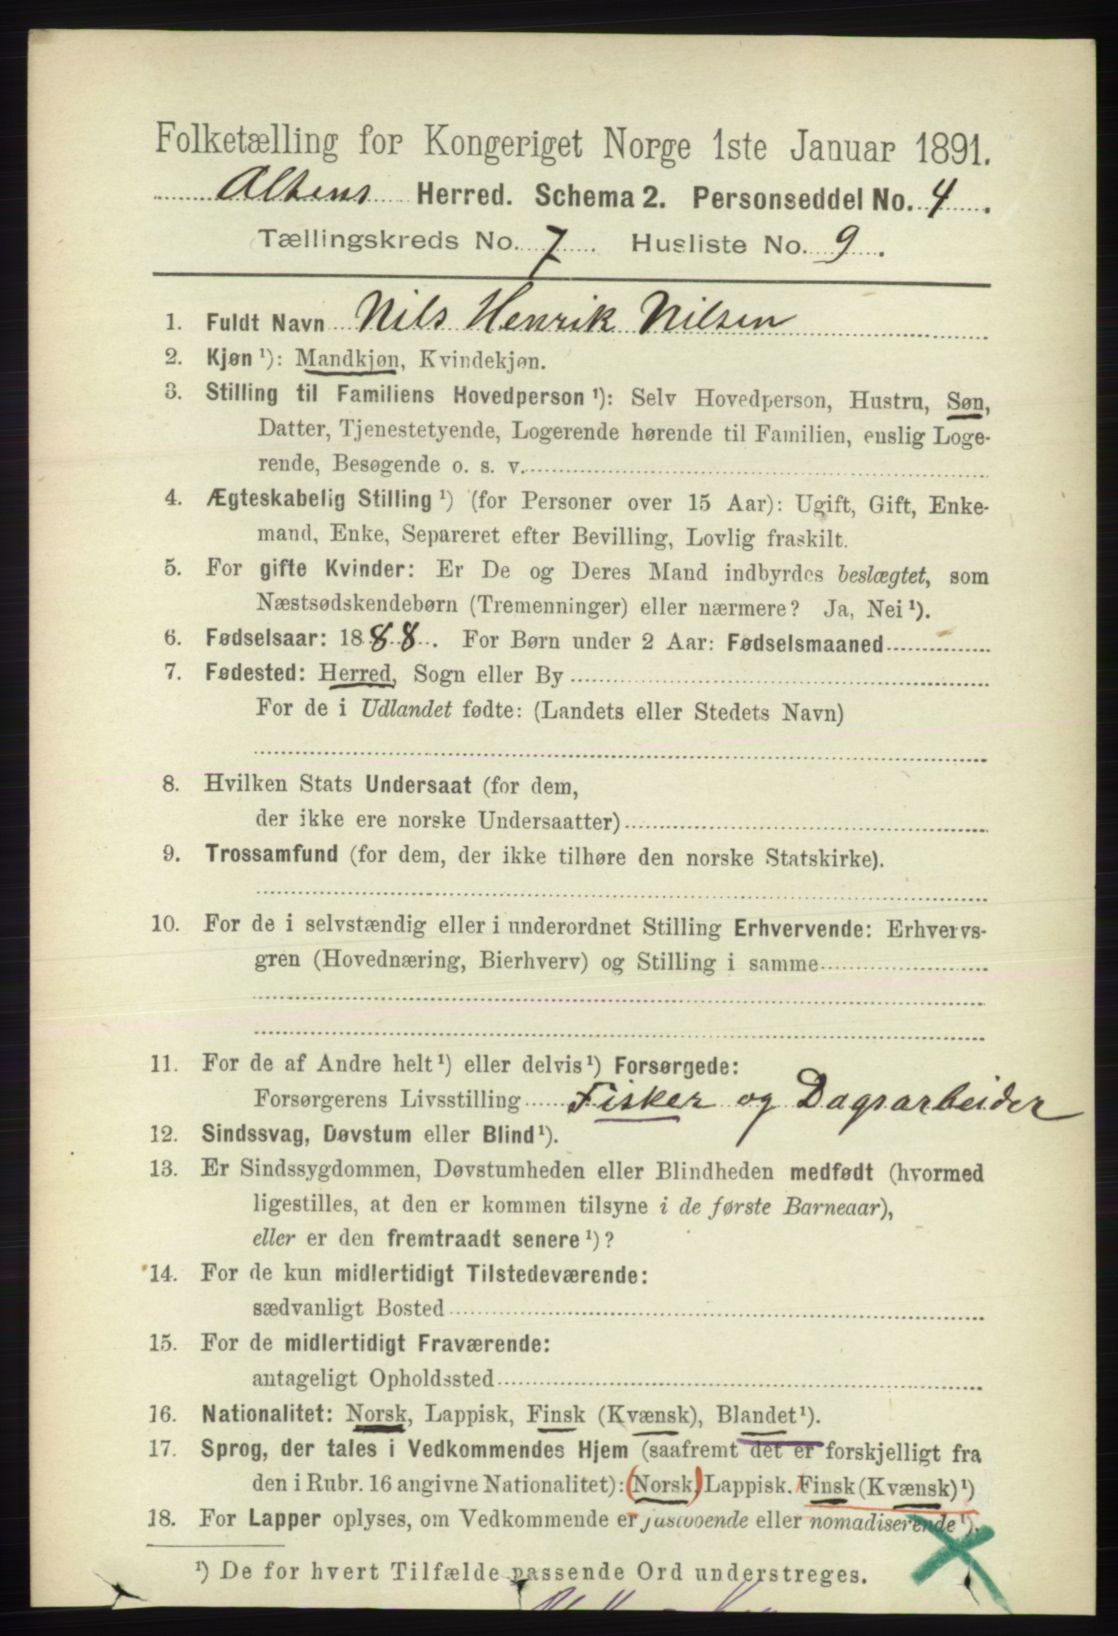 Folketælling for Kongeriget Norge 1ste Januar 1891.
Altens Herred. Schema 2. Personseddel No. 4.
Tællingskreds No. 7 Husliste No. 9.
1. Fuldt Navn Nils Henrik Nilsen
2. Kjøn ¹): Mandkjøn, Kvindekjøn.
3. Stilling til Familiens Hovedperson ¹): Selv Hovedperson, Hustru, Søn,
Datter, Tjenestetyende, Logerende hørende til Familien, enslig Loge-
rende, Besøgende o. s. v.
4. Ægteskabelig Stilling ¹) (for Personer over 15 Aar): Ugift, Gift, Enke-
mand, Enke, Separeret efter Bevilling, Lovlig fraskilt.
5. For gifte Kvinder: Er De og Deres Mand indbyrdes beslægtet, som
Næstsødskendebørn (Tremenninger) eller nærmere? Ja, Nei ¹).
6. Fødselsaar: 1888. For Børn under 2 Aar: Fødselsmaaned
7. Fødested: Herred, Sogn eller By
For de i Udlandet fødte: (Landets eller Stedets Navn)
8. Hvilken Stats Undersaat (for dem,
der ikke ere norske Undersaatter)
9. Trossamfund (for dem, der ikke tilhøre den norske Statskirke).
10. For de i selvstændig eller i underordnet Stilling Erhvervende: Erhvervs-
gren (Hovednæring, Bierhverv) og Stilling i samme
11. For de af Andre helt ¹) eller delvis ¹) Forsørgede:
Forsørgerens Livsstilling Fisker og Dagsarbeider
12. Sindssvag, Døvstum eller Blind ¹).
13. Er Sindssygdommen, Døvstumheden eller Blindheden medfødt (hvormed
ligestilles, at den er kommen tilsyne i de første Barneaar),
eller er den fremtraadt senere ¹)?
14. For de kun midlertidigt Tilstedeværende:
sædvanligt Bosted
15. For de midlertidigt Fraværende:
antageligt Opholdssted
16. Nationalitet: Norsk, Lappisk, Finsk (Kvænsk), Blandet ¹).
17. Sprog, der tales i Vedkommendes Hjem (saafremt det er forskjelligt fra
den i Rubr. 16 angivne Nationalitet): (Norsk) Lappisk. Finsk (Kvænsk) ¹)
18. For Lapper oplyses, om Vedkommende er fastboende eller nomadiserende ¹).
¹) De for hvert Tilfælde passende Ord understreges.